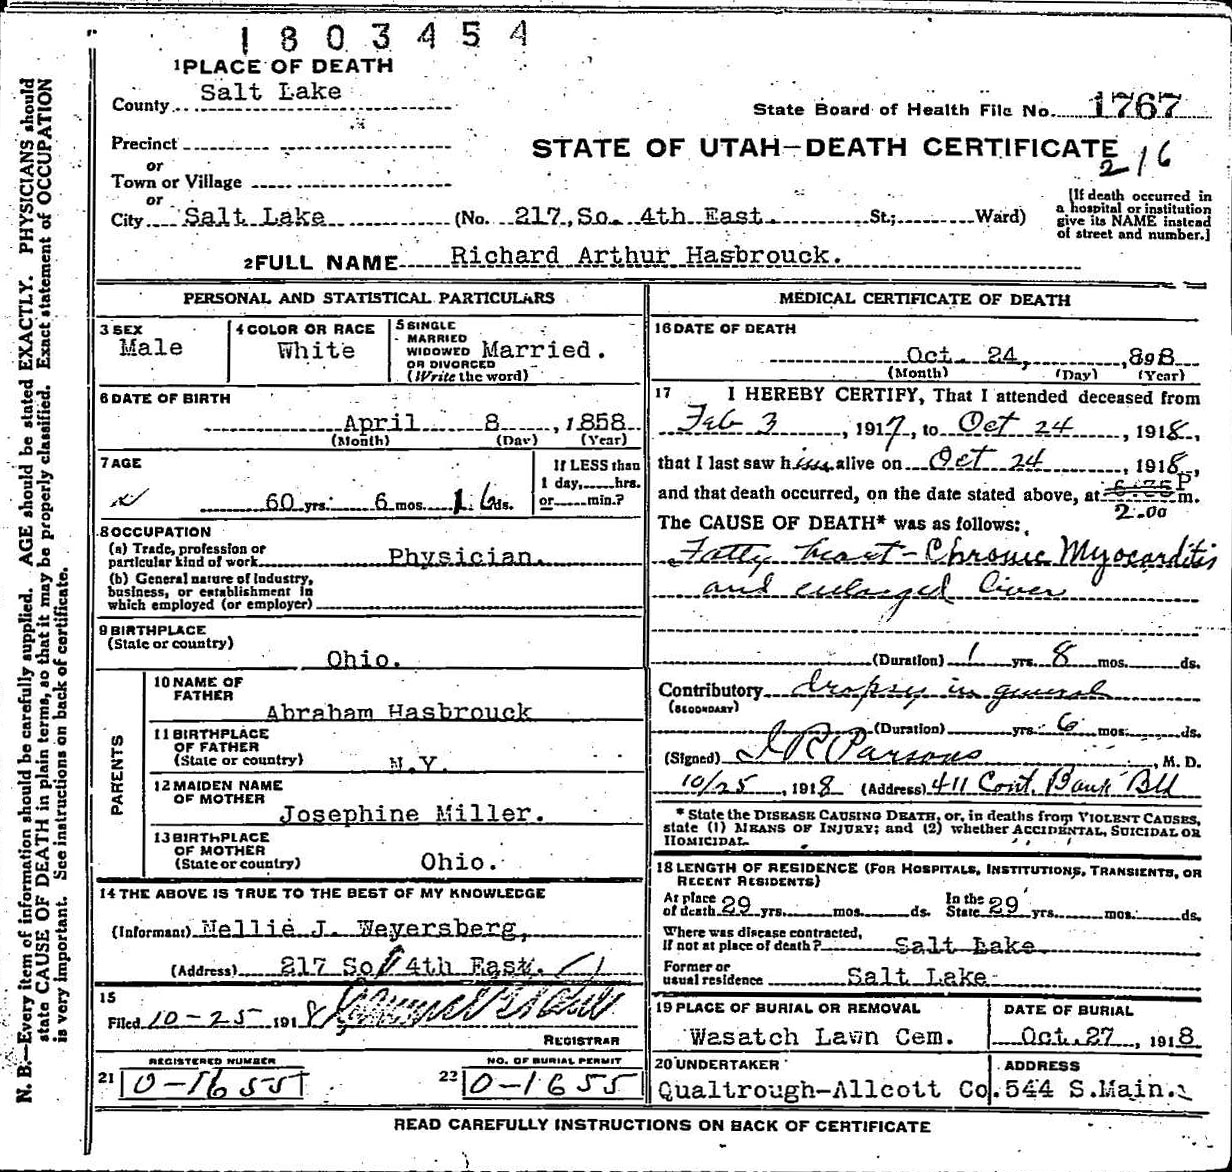 1803454
1 PLACE OF DEATH
County Salt Lake
State Board of Health File No. 1767
Precinct
STATE OF UTAH—DEATH CERTIFICATE
216
or
Town or Village
or
City Salt Lake (No. 217 So. 4th East. St.; Ward)
[If death occurred in
a hospital or institution
give its NAME instead
of street and number.]
2 FULL NAME Richard Arthur Hasbrouck.
PERSONAL AND STATISTICAL PARTICULARS
3 SEX
Male
4 COLOR OR RACE
White
5 SINGLE
MARRIED
WIDOWED
OR DIVORCED
(Write the word)
Married.
6 DATE OF BIRTH
April 8, 1858
(Month) (Day) (Year)
7 AGE
60 yrs. 6 mos. 16 ds.
If LESS than
1 day, hrs.
or min.?
8 OCCUPATION
(a) Trade, profession or
particular kind of work Physician.
(b) General nature of industry,
business, or establishment in
which employed (or employer)
9 BIRTHPLACE
(State or country)
Ohio.
PARENTS
10 NAME OF
FATHER
Abraham Hasbrouck
11 BIRTHPLACE
OF FATHER
(State or country) N.Y.
12 MAIDEN NAME
OF MOTHER
Josephine Miller.
13 BIRTHPLACE
OF MOTHER
(State or country) Ohio.
14 THE ABOVE IS TRUE TO THE BEST OF MY KNOWLEDGE
(Informant) Nellie J. Weyersberg,
(Address) 217 So 4th East.
15
Filed 10-25 1918
REGISTRAR
REGISTERED NUMBER
21 0-1655
NO. OF BURIAL PERMIT
22 0-1655
MEDICAL CERTIFICATE OF DEATH
16 DATE OF DEATH
Oct. 24,
(Month) (Day) (Year)
17 I HEREBY CERTIFY, That I attended deceased from
Feb 3, 1917, to Oct 24, 1918,
that I last saw him alive on Oct 24, 1918,
and that death occurred, on the date stated above, at P m.
2.00
The CAUSE OF DEATH* was as follows:
Fatty heart - Chronic Myocarditis
and enlarged liver
(Duration) 1 yrs. 8 mos. ds.
Contributory dropsy in general
(SECONDARY)
(Duration) yrs. 6 mos. ds.
(Signed) Parsons, M. D.
10/25, 1918 (Address) 411 Cont. Bank Bld
* State the DISEASE CAUSING DEATH, or, in deaths from VIOLENT CAUSES,
state (1) MEANS OF INJURY; and (2) whether ACCIDENTAL, SUICIDAL OR
HOMICIDAL.
18 LENGTH OF RESIDENCE (FOR HOSPITALS, INSTITUTIONS, TRANSIENTS, OR
RECENT RESIDENTS)
At place
of death 29 yrs. mos. ds.
In the
State 29 yrs. mos. ds.
Where was disease contracted,
If not at place of death? Salt Lake
Former or
usual residence Salt Lake
19 PLACE OF BURIAL OR REMOVAL
Wasatch Lawn Cem.
DATE OF BURIAL
Oct. 27, 1918
20 UNDERTAKER
Qualtrough-Allcott Co.
ADDRESS
544 S.Main.
READ CAREFULLY INSTRUCTIONS ON BACK OF CERTIFICATE
N. B.—Every item of information should be carefully supplied. AGE should be stated EXACTLY. PHYSICIANS should
state CAUSE OF DEATH in plain terms, so that it may be properly classified. Exact statement of OCCUPATION
is very important. See instructions on back of certificate.